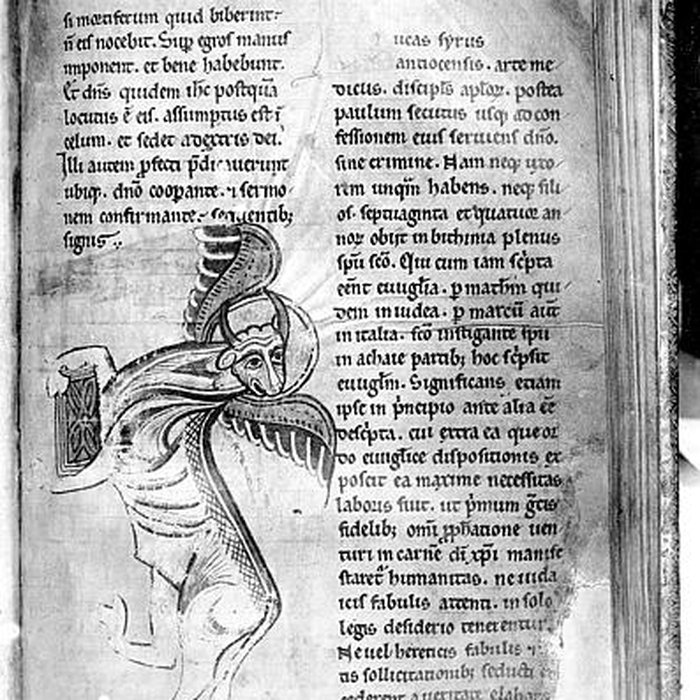 si mortiferum quid biberint.
n̄ eis nocebit. Sup egros manus
imponent. et bene habebunt.
Et dn̄s quidem ihc postquā
locutus ē eis. assumptus est ī
celum. et sedet adextris dei.
Illi autem pfecti pdicauerunt
ubiq. dn̄o coopante. ⁊ sermo
nem confirmante sequentib;
signis
ucas syrus
antiocensis. arte me
dicus. discipls aplor. postea
paulum secutus usq ad con
fessionem eius seruiens dn̄o.
sine crimine. Nam neq uxo
rem unqm habens. neq fili
os. septuaginta et quatuor an
nor obijt in bithinia plenus
spū scō. Qui cum iam scripta
eēnt euuglia. p mathm qui
dem in iudea. p marcū aūt
in italia. scō instigante spū
in achaie partib; hoc scpsit
euuglm. Significans etiam
ipse in pncipio ante alia eē
descpta. cui extra ea que or
do euuglice dispositionis ex
poscit ea maxime necessitas
laboris fuit. ut pmum gcis
fidelib; omi pphatione uen
turi in carnē dī xpi manife
staret humanitas. ne iuda
icis fabulis attenti. in solo
legis desiderio tenerentur.
Ne uel hereticis fabulis
tis sollicitationib; seducti